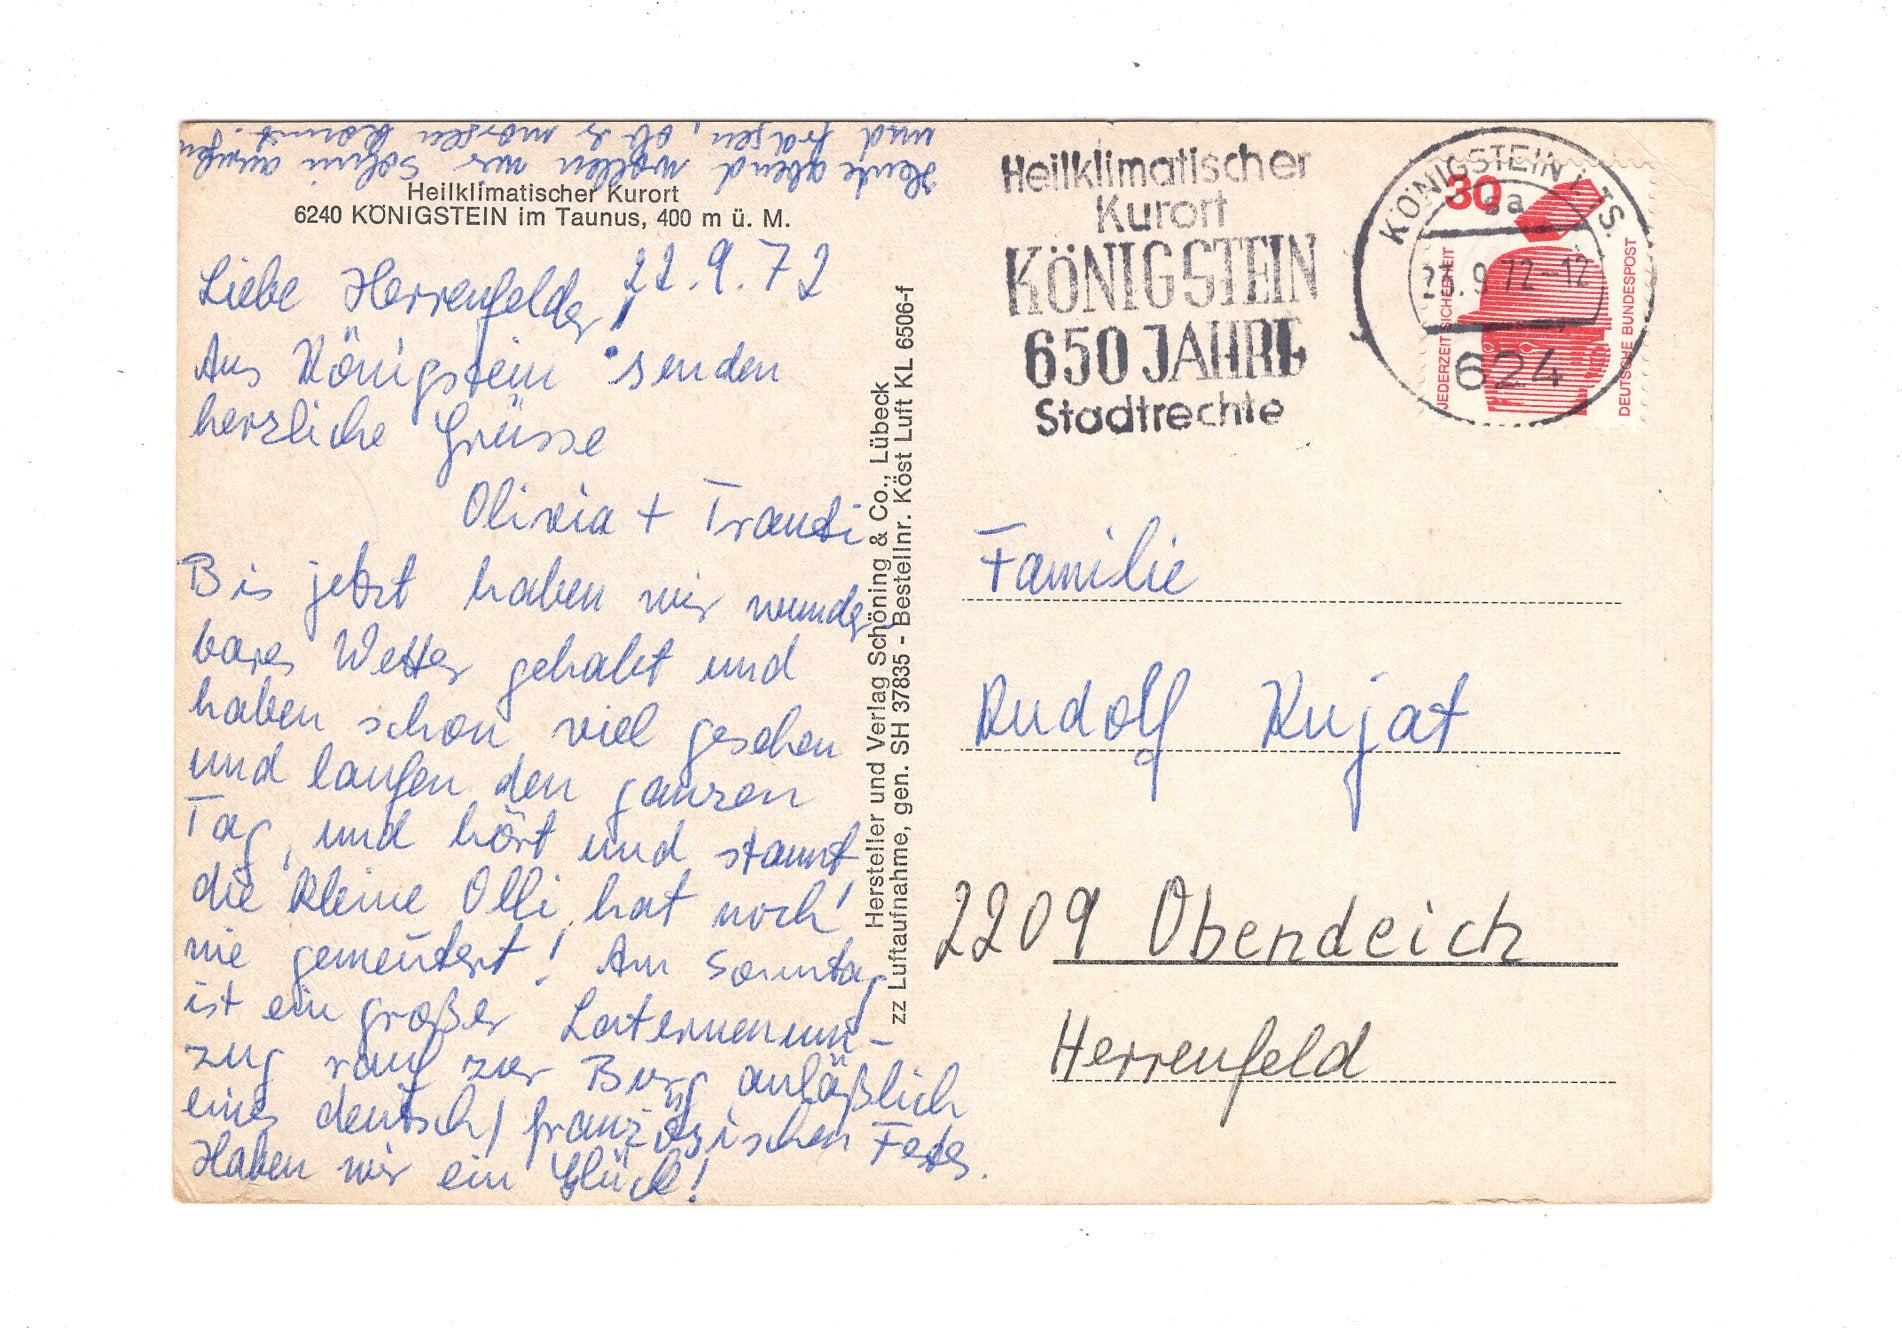 Heute abend wollen wir Schni anrufen
und fragen, ob er morgen kommt.
Heilklimatischer Kurort
6240 KÖNIGSTEIN im Taunus, 400 m ü. M.
22.9.72
Liebe Herrenfelder!
Aus Königstein senden
herzliche Grüsse
Olivia + Trauti
Bis jetzt haben wir wunder-
bares Wetter gehabt und
haben schon viel gesehen
und laufen den ganzen
Tag, und hört und staunt,
die kleine Olli hat noch
nie gemeutert! Am Sonntag
ist ein großer Laternenum-
zug rauf zur Burg anläßlich
eines deutsch/französischen Festes.
Haben wir ein Glück!
Hersteller und Verlag Schöning & Co., Lübeck
zz Luftaufnahme, gen. SH 37835 - Bestellnr. Köst Luft KL 6506-f
Heilklimatischer
Kurort
KÖNIGSTEIN
650 JAHRE
Stadtrechte
KÖNIGSTEIN i. TS.
ga
23.9.72-12
624
30
JEDERZEIT SICHERHEIT
DEUTSCHE BUNDESPOST
Familie
Rudolf Kujat
2209 Obendeich
Herrenfeld